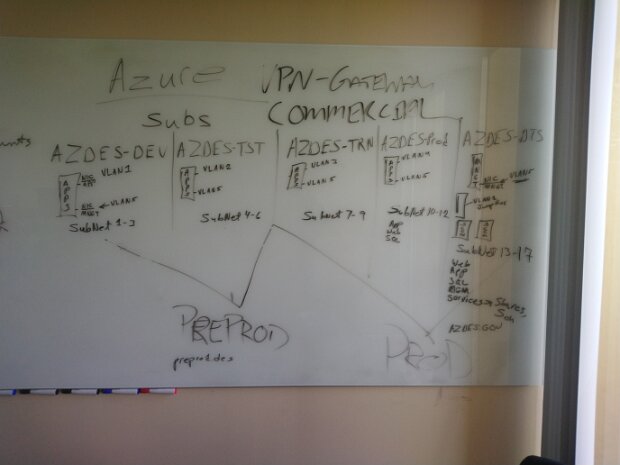 Azure VPN-GATEWAY
Subs COMMERCIAL
AZDES-DEV AZDES-TST AZDES-TRN AZDES-Prod
VLAN1 VLAN2 VLAN3 VLAN4
APPS NIC APP
VLAN5 VLAN5 VLAN5 VLAN5 VLAN5
NIC MNGT
SubNet 1-3 SubNet 4-6 SubNet 7-9 SubNet 10-12 SubNet 13-17
App
Web
SQL
Web
App
SQL
Services Shares,
AZDES.GOV
PREPROD PROD
preprod.des